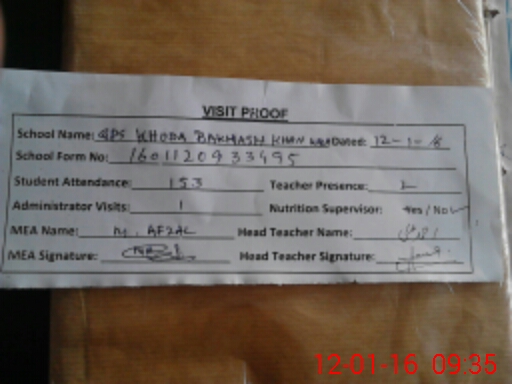 VISIT PROOF
School Name: GPS KHODA BAKHASH KHAN Dated: 12-1-16
School Form No: 1601120933495
Student Attendance: 153 Teacher Presence:
Administrator Visits: 1 Nutrition Supervisor: Yes / No
MEA Name: M. AFZAL Head Teacher Name:
MEA Signature: Head Teacher Signature:
12-01-16 09:35